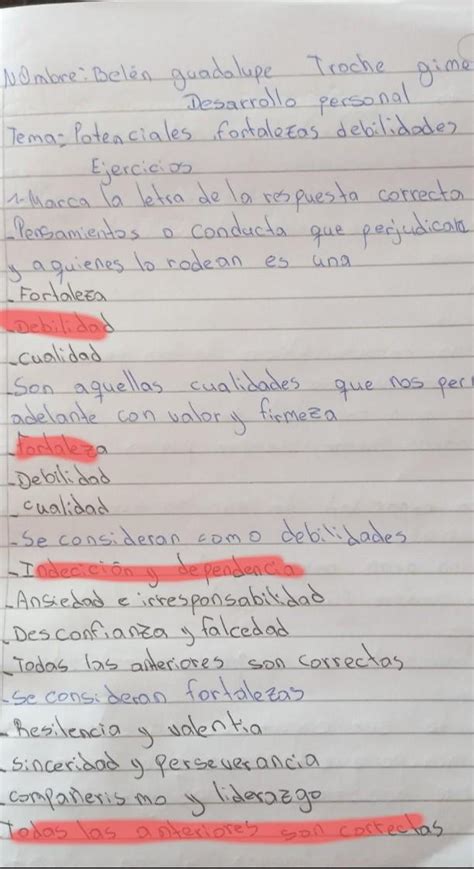 Nombre: Belén guadalupe Troche gime
Desarrollo personal
Tema= Potenciales fortalezas debilidades
Ejercicios
1-Marca la letra de la respuesta correcta
-Pensamientos o conducta que perjudican
y a quienes lo rodean es una
-Fortaleza
-Debilidad
-cualidad
-Son aquellas cualidades que nos per
adelante con valor y firmeza
-fortaleza
-Debilidad
-cualidad
-se consideran como debilidades
-Indecición y dependencia
-Ansiedad e irresponsabilidad
-Desconfianza y falcedad
-Todas las anteriores son correctas
-se consideran fortalezas
-Resilencia y valentia
-sinceridad y perseverancia
-compañerismo y liderazgo
Todas las anteriores son correctas